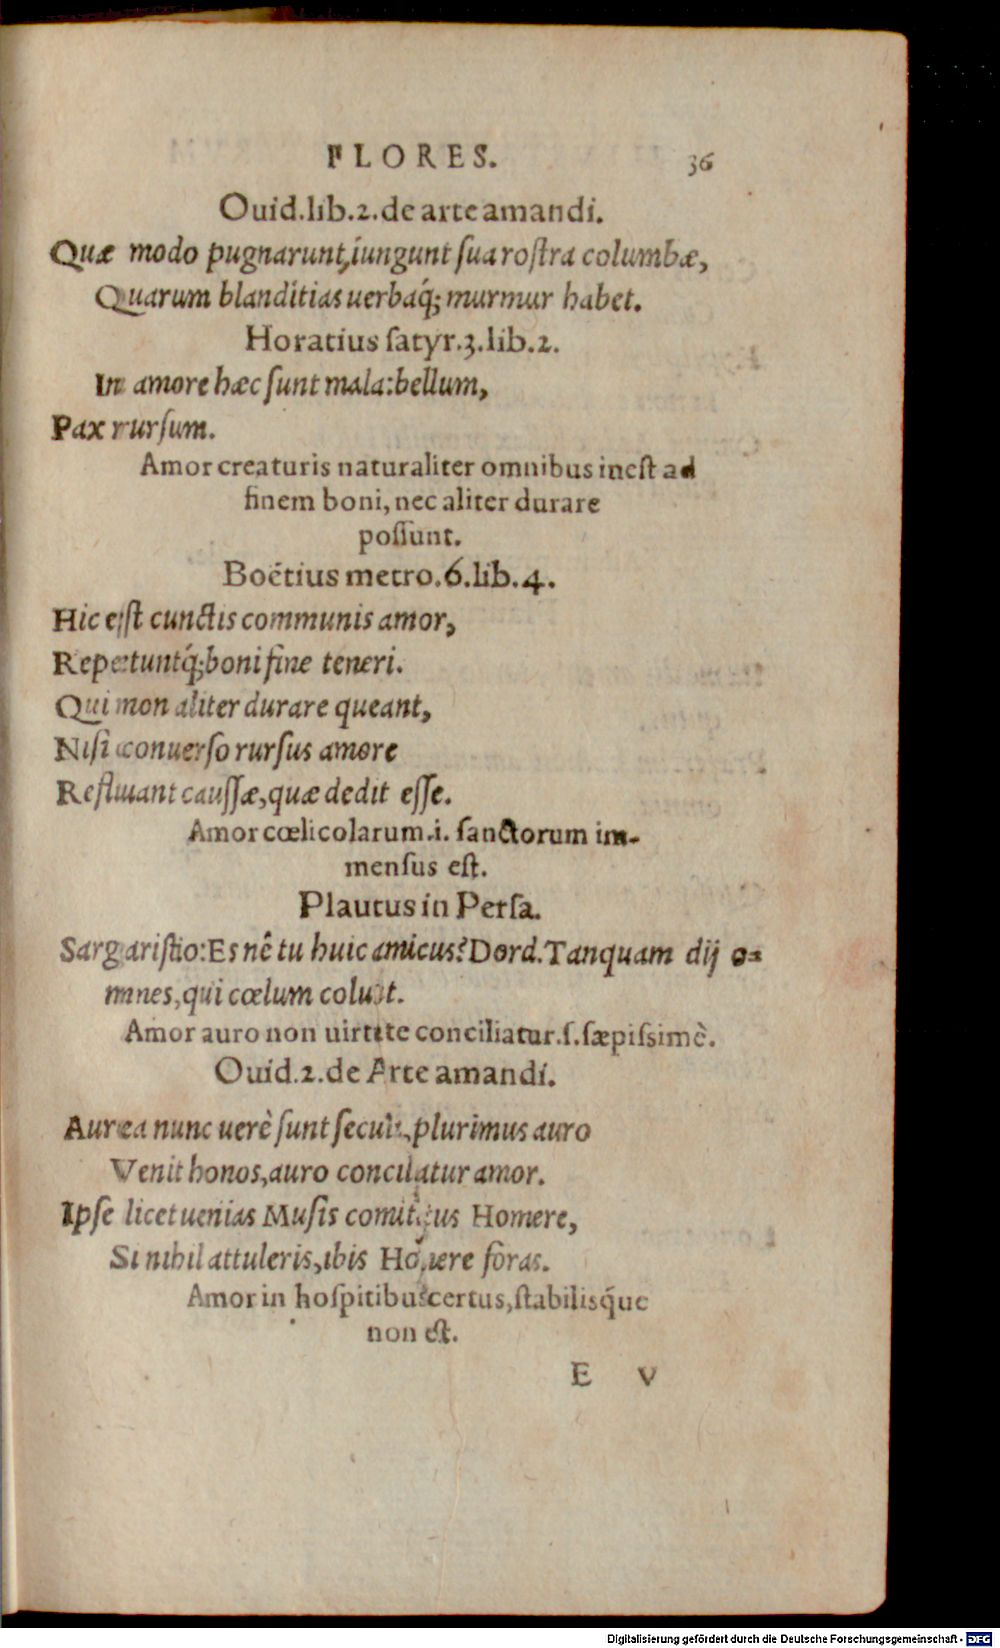 FLORES. 36
Ouid.lib.2.de arte amandi.
Quæ modo pugnarunt,iungunt ſua roſtra columbæ,
Quarum blanditias uerbaq́; murmur habet.
Horatius ſatyr.3.lib.2.
In amore hæc ſunt mala:bellum,
Pax rurſum.
Amor creaturis naturaliter omnibus ineſt ad
finem boni, nec aliter durare
poſſunt.
Boëtius metro.6.lib.4.
Hic eſt cunctis communis amor,
Repetuntq́;boni fine teneri.
Qui non aliter durare queant,
Niſi conuerſo rurſus amore
Refluant cauſſæ,quæ dedit eſſe.
Amor cœlicolarum.i. ſanctorum im-
menſus eſt.
Plautus in Perſa.
Sargariſtio:Es nê tu huic amicus?Dord.Tanquam dij o-
mnes,qui cœlum colunt.
Amor auro non uirtute conciliatur.ſ.ſæpiſsimè.
Ouid.2.de Arte amandi.
Aurea nunc uerè ſunt ſecula,plurimus auro
Venit honos,auro conciliatur amor.
Ipſe licet uenias Muſis comitatus Homere,
Si nihil attuleris,ibis Homere foras.
Amor in hoſpitibus certus,ſtabilisq́ue
non eſt.
E v
Digitalisierung gefördert durch die Deutsche Forschungsgemeinschaft - DFG